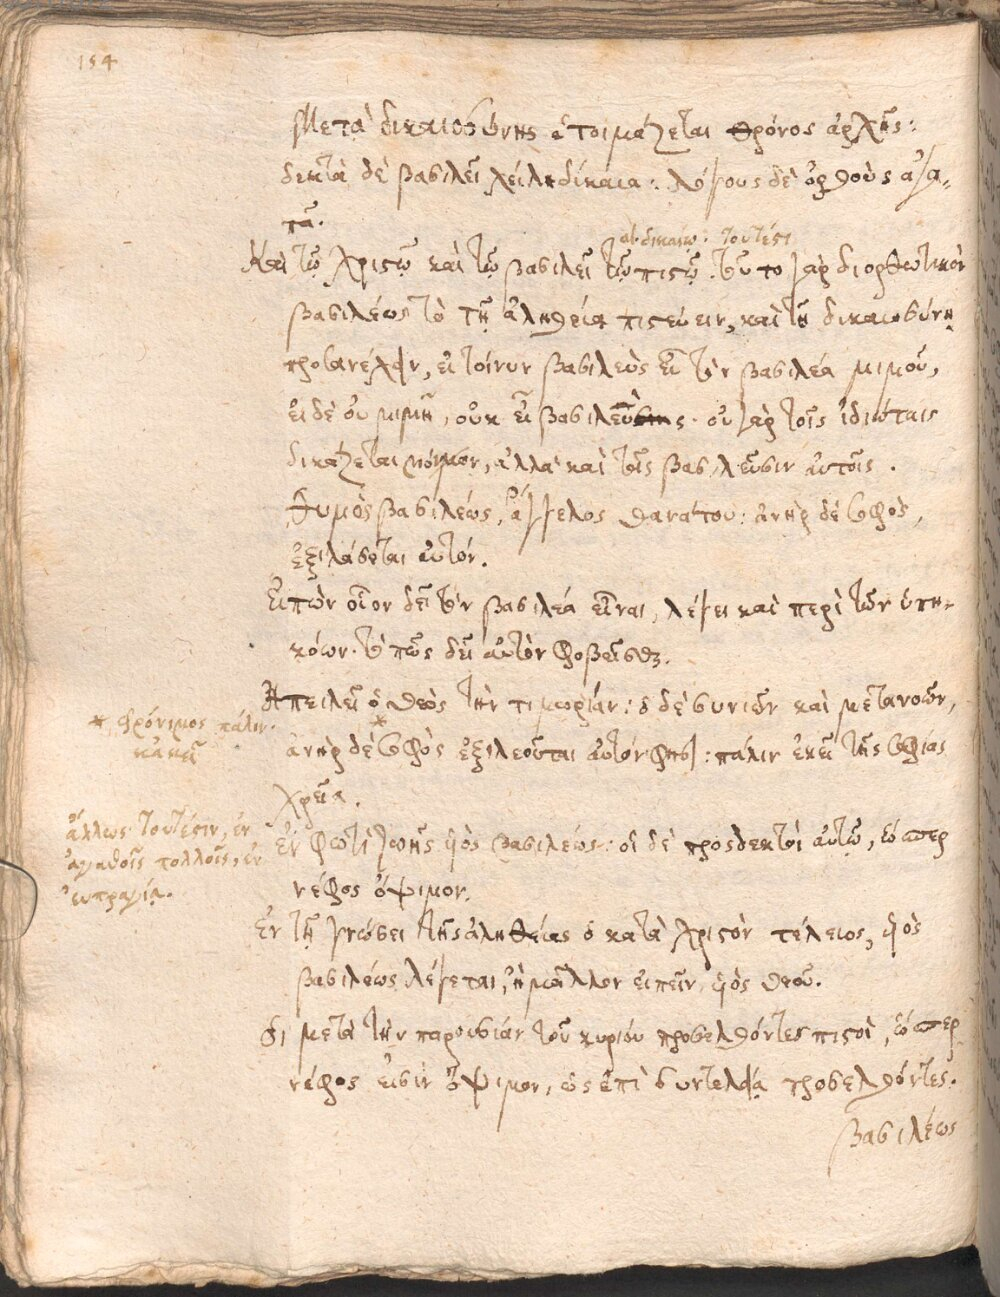 154
Μετὰ δικαιοσύνης ἑτοιμάζεται θρόνος ἀρχῆς:
δεκτὰ δὲ βασιλεῖ χείλη δίκαια: λόγους δὲ ὀρθοὺς ἀγα-
πᾶ.
δικαίῳ: τουτέστι
Καὶ τῷ Χριστῷ καὶ τῷ βασιλεῖ τῷ πιστῷ. τοῦτο γὰρ διορθωτικὸν
βασιλέως τὸ τῇ ἀληθείᾳ πιστεύειν, καὶ τῇ δικαιοσύνῃ
προσανέχειν, εἰ τοίνυν βασιλεὺς εἶ τὸν βασιλέα μιμοῦ,
εἰ δὲ οὐ μιμῇ, οὐκ εἶ βασιλεὺς. οὐ γὰρ τοῖς ἰδιώταις
δικάζεται μόνον, ἀλλὰ καὶ τοῖς βασιλεῦσιν αὐτοῖς.
Θυμὸς βασιλέως, ἄγγελος θανάτου: ἀνὴρ δὲ σοφὸς,
ἐξιλάσεται αὐτόν.
Εἰπὼν οἷον δεῖ τὸν βασιλέα εἶναι, λέγει καὶ περὶ τῶν ὑπη-
κόων. τὸ πῶς δεῖ αὐτὸν φοβεῖσθαι.
Ἀπειλεῖ ὁ θεὸς τὴν τιμωρίαν: ὁ δὲ συνιὼν καὶ μετανοῶν,
* φρόνιμος πάλιν.
κἀκεῖ
ἀνὴρ δὲ σοφὸς * ἐξιλεοῦται αὐτόν φησι: πάλιν ἐκεῖ τῆς σοφίας
χρε�ία.
ἄλλως τουτέστιν, ἐν
ἀγαθοῖς πολλοῖς, ἐν
εὐπραγίᾳ.
Ἐν φωτὶ ζωῆς υἱὸς βασιλέως: οἱ δὲ προσδεκτοὶ αὐτῷ, ὥσπερ
νέφος ὄψιμον.
Ἐν τῇ γνώσει τῆς ἀληθείας ὁ κατὰ Χριστὸν τέλειος, υἱὸς
βασιλέως λέγεται, ἢ μᾶλλον εἰπεῖν υἱὸς θεοῦ.
Οἱ μετὰ τὴν παρουσίαν τοῦ κυρίου προσελθόντες πιστοὶ, ὥσπερ
νέφος εἰσὶν ὄψιμον, ὡς ἐπὶ συντελείᾳ προσελθόντες.
βασιλέως